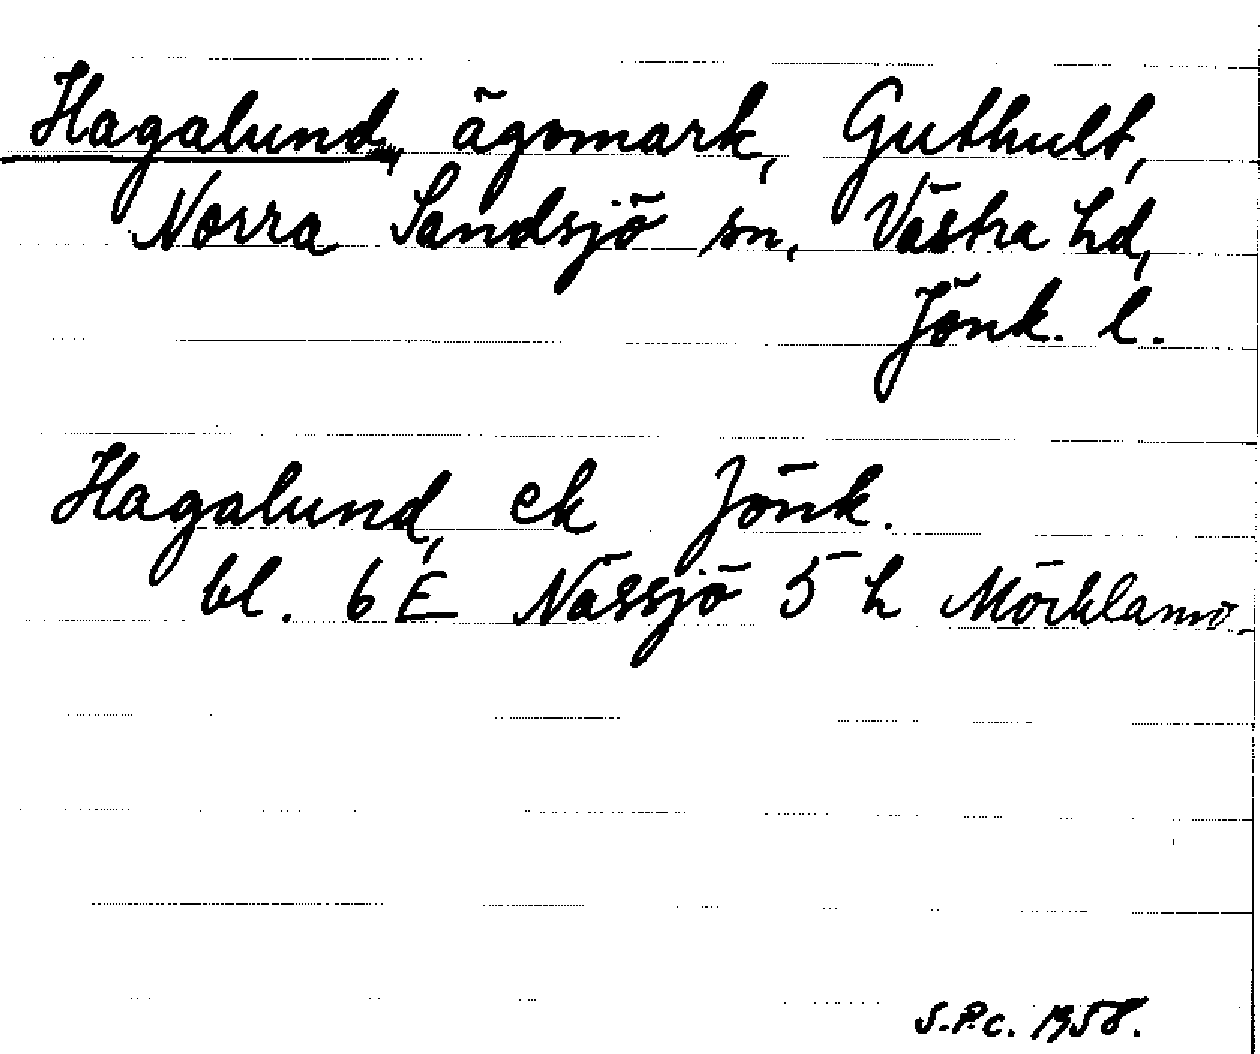 Hagalund, ägomark, Guthult,
Norra Sandsjö sn, Västra hd,
Jönk. l.
Hagalund, ek Jönk.
bl. 6 E Nässjö 5 h Mörhlamo
S.P.c. 1958.